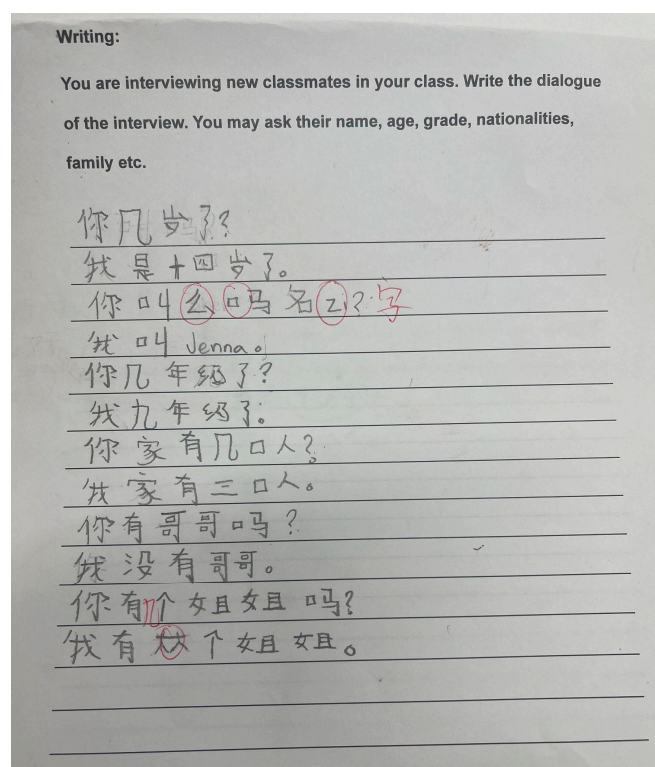 Writing:
You are interviewing new classmates in your class. Write the dialogue
of the interview. You may ask their name, age, grade, nationalities,
family etc.
你几岁了?
我是十四岁了。
你叫么吗名?字
我叫 Jenna。
你几年级了?
我九年级了。
你家有几口人?
我家有三口人。
你有哥哥吗?
我没有哥哥。
你有几个姐姐吗?
我有个姐姐。